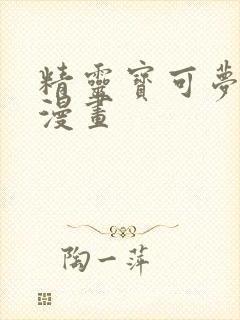 精靈寶可夢
漫畫
陶一萍